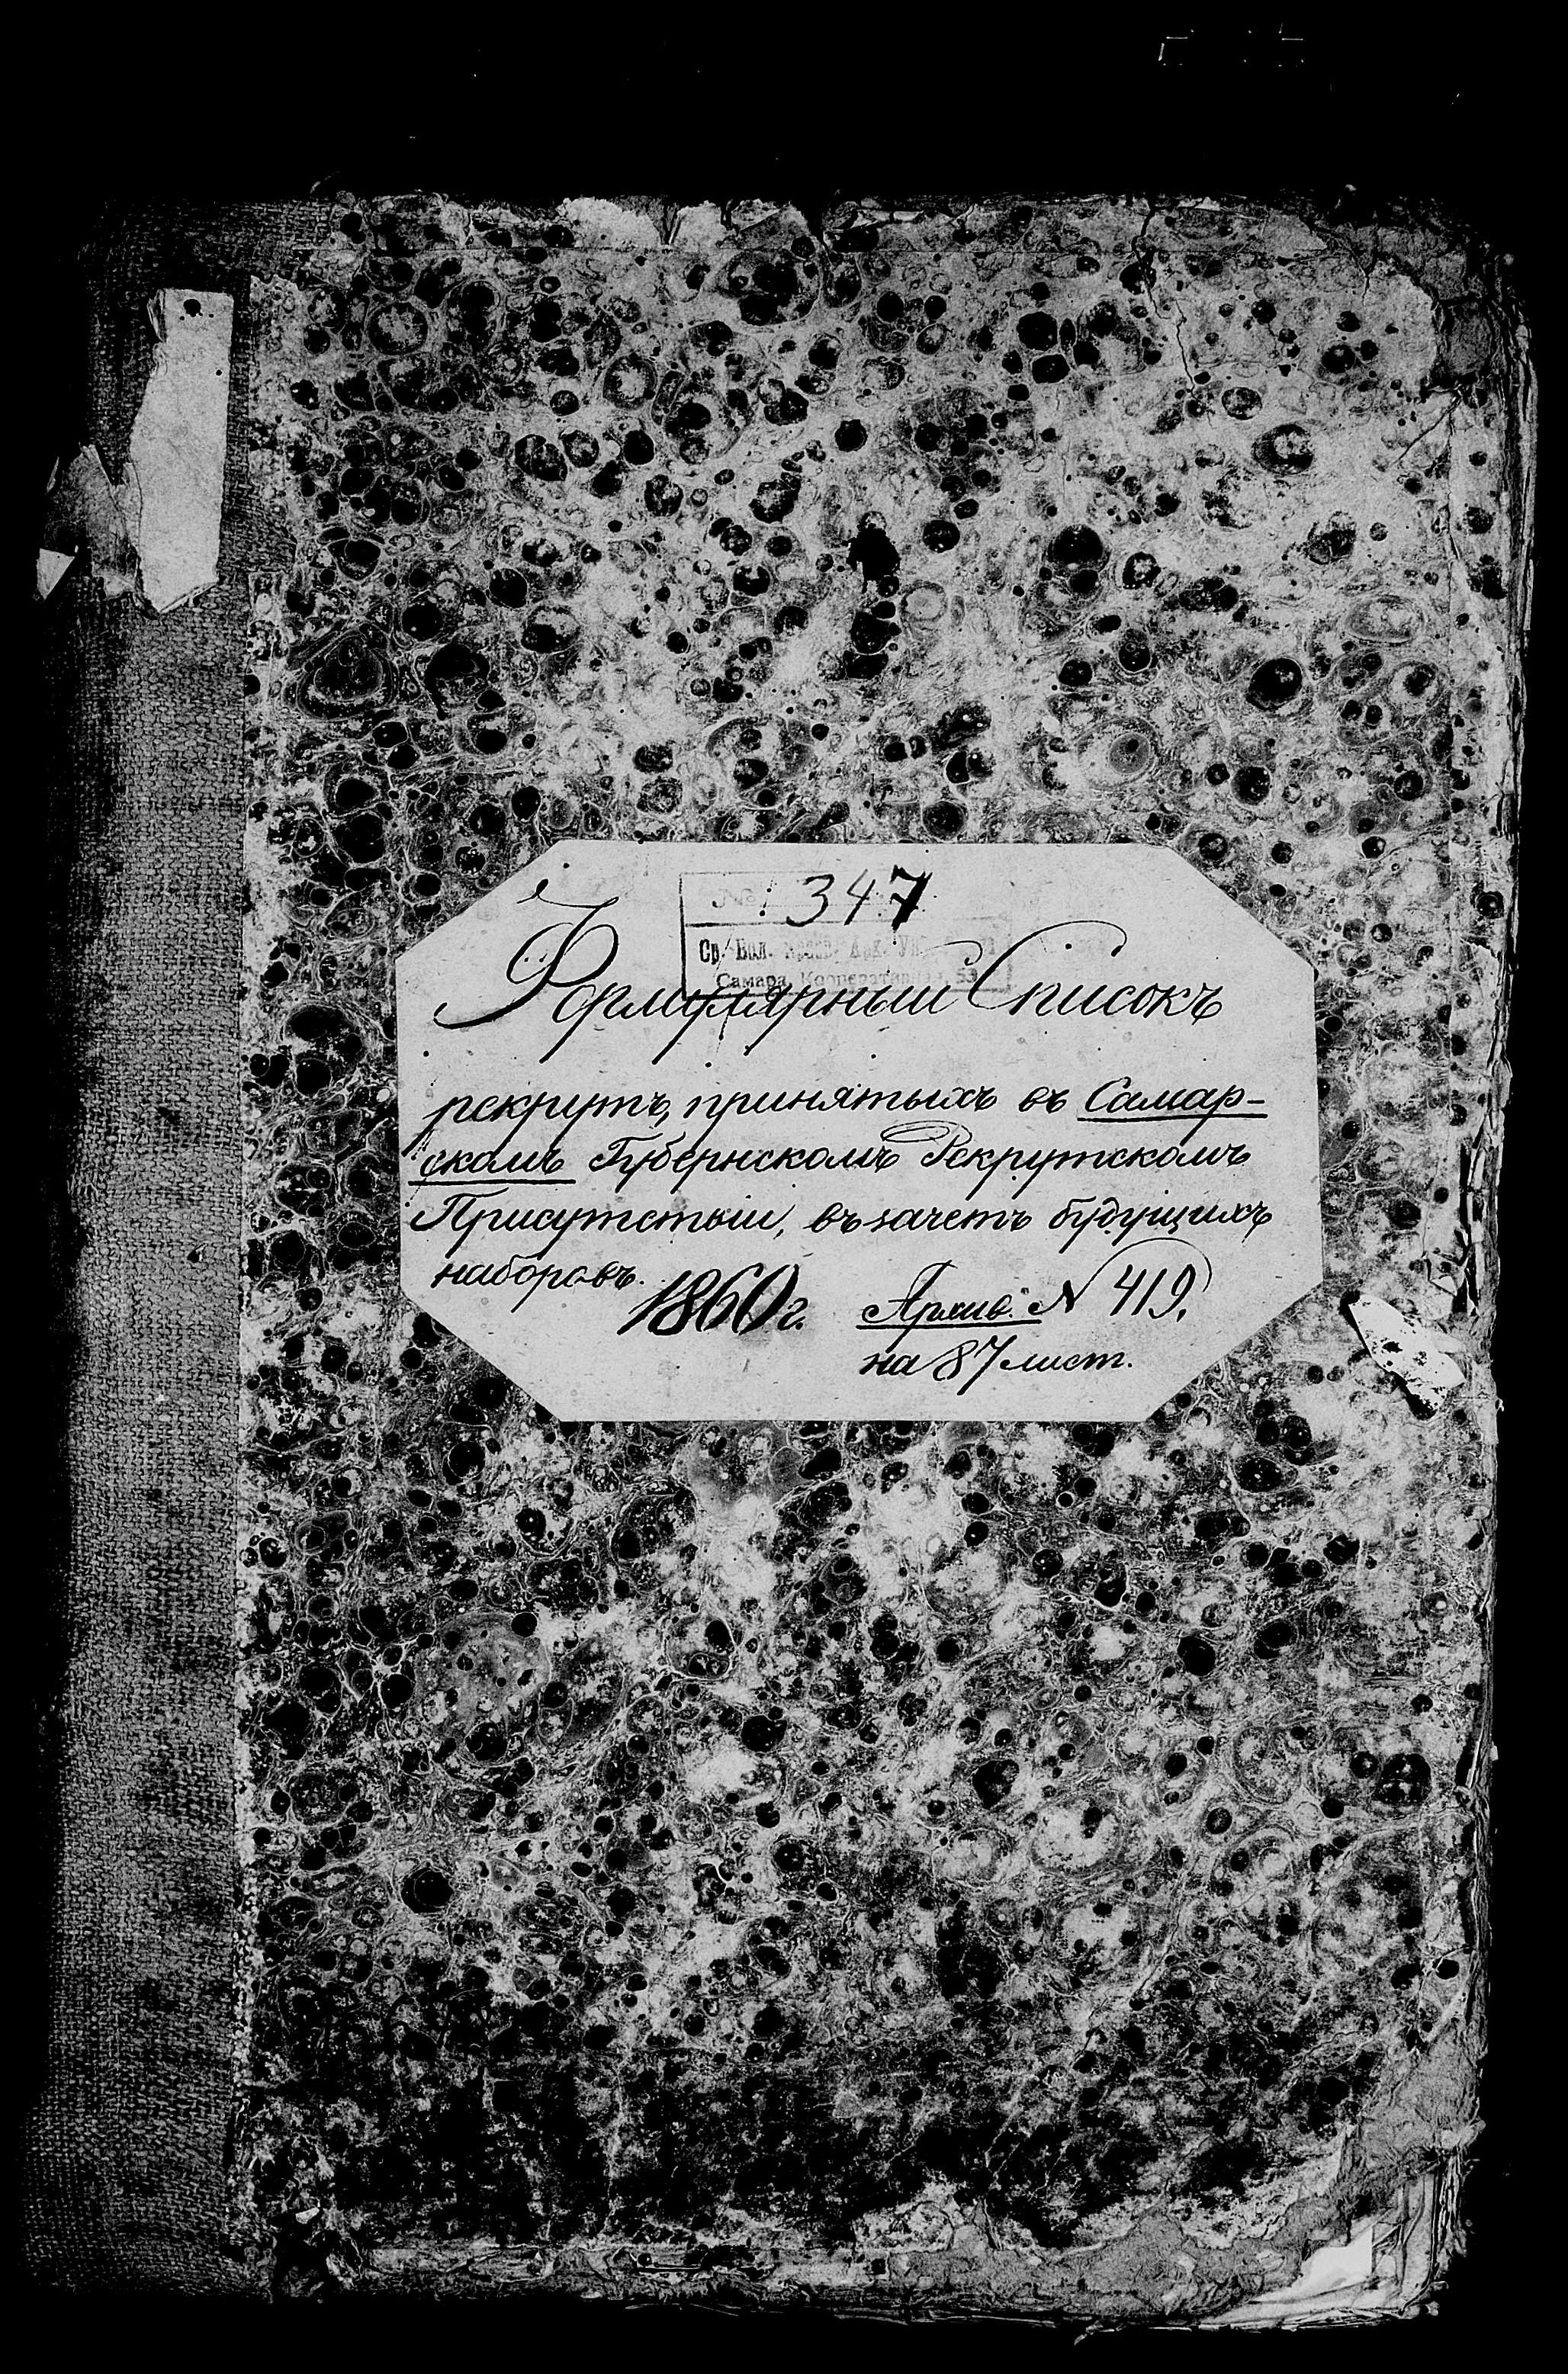 № 347
Ср. Вол.
Самара, Кооперативная, 53
Формулярный Списокъ
рекрутъ, принятыхъ въ Самар-
скомъ Губернскомъ Рекрутскомъ
Присутствіи, въ зачетъ будущихъ
наборовъ.
1860 г. Архив. N 419.
на 87 лист.